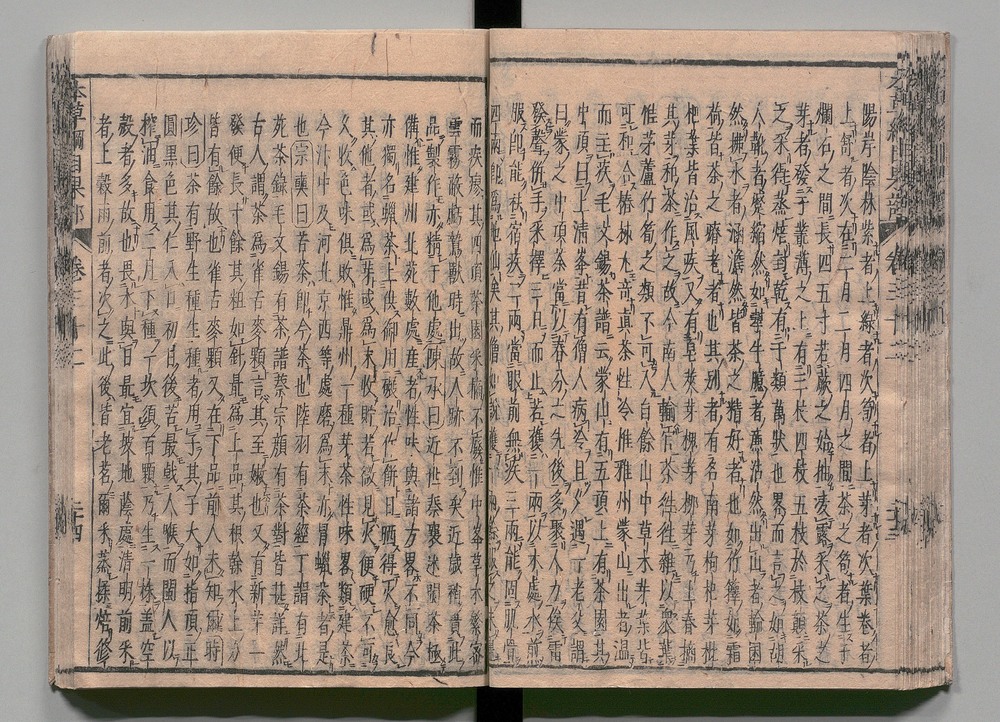 陽岸陰林紫者上綠者次筍者上芽者次葉卷者
上舒者次在二月三月四月之閒茶之筍者生于
爛石之間長四五寸若蕨之始抽凌露采之茶之
芽者發于叢薄之上有三枝四枝五枝於枝顛采
之采得蒸焙封乾有千類萬狀也略而言之如胡
人靴者蹙縮然如犎牛臆者廉沾然出山者輪囷
然拂水者涵澹然皆茶之精好者也如竹籜如霜
荷皆茶之瘠老者也其別者有石南芽枸杞芽枇
杷芽皆治風疾又有皂莢芽槐芽柳芽乃上春摘
其芽和茶作之故今南人輸官茶往往雜以衆葉
惟茅蘆竹筍之類不可入自餘山中草木芽葉皆
可和合椿柿尤奇真茶性冷惟雅州蒙山出者溫
而主疾毛文錫茶譜云蒙山有五頂上有茶園其
中頂曰上清峯昔有僧人病冷且久遇一老父謂
曰蒙之中頂茶當以春分之先後多聚人力俟雷
發聲併手采擇三日而止若獲一兩以本處水煎
服即能祛宿疾二兩當眼前無疾三兩能固肌骨
四兩即爲地仙矣其僧如說獲一兩餘服之未盡
而疾瘳其四頂茶園采摘不廢惟中峯草木繁密
雲霧蔽虧鷙獸時出故人跡不到矣近歲稍貴此
品製作亦精于他處陳承曰近世蔡襄述閩茶極
備惟建州北苑數處産者性味與諸方畧不同今
亦獨名蠟茶上供御用碾治作餅日晒得火愈良
其他者或爲芽或爲末收貯若微見火便硬不可
久收色味俱敗惟鼎州一種芽茶性味畧類建茶
今汴中及河北京西等處磨爲末亦冒蠟茶者是
也宗奭曰苦茶即今茶也陸羽有茶經丁謂有北
苑茶錄毛文錫有茶譜蔡宗顔有茶對皆甚詳然
古人謂茶爲雀舌麥顆言其至嫩也又有新芽一
發便長寸餘其粗如針最爲上品其根幹水土力
皆有餘故也雀舌麥顆又在下品前人未知爾時
珍曰茶有野生種生種者用子其子大如指頂正
圓黑色其仁入口初甘後苦最戟人喉而閩人以
榨油食用二月下種一坎須百顆乃生一株蓋空
殻者多故也畏水與日最宜坡地蔭處清明前采
者上穀雨前者次之此後皆老茗爾采蒸揉焙修
本草綱目果部
卷三十二